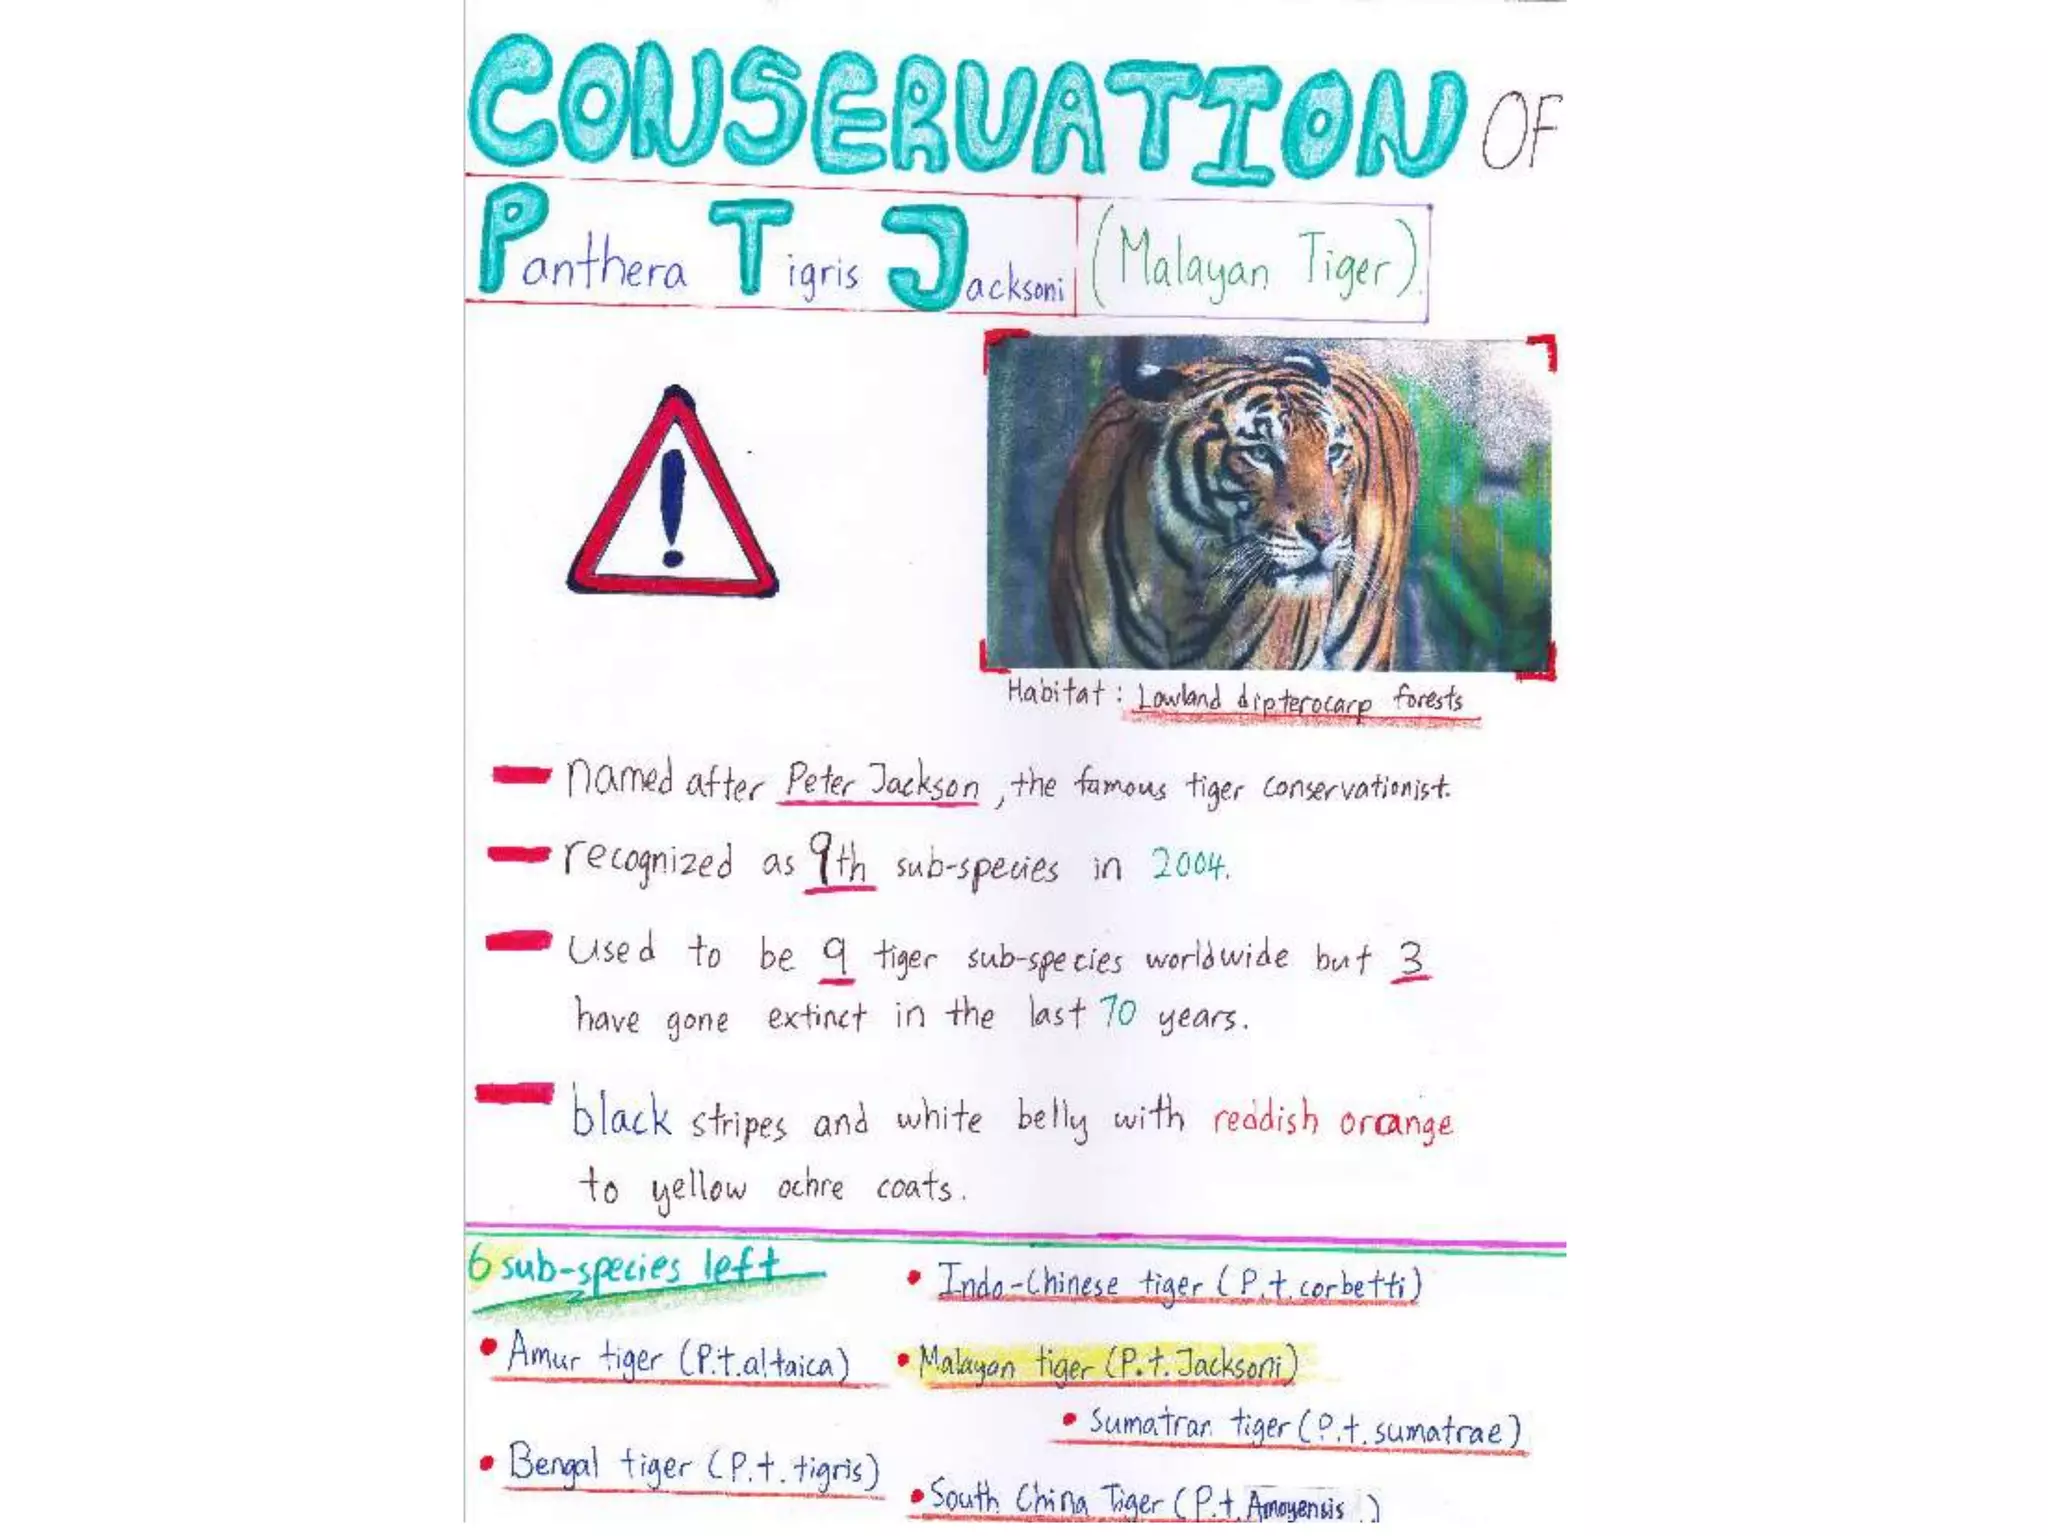 CONSERVATION OF
Panthera Tigris Jacksoni (Malayan Tiger).
!
Habitat: Lowland dipterocarp forests
named after Peter Jackson, the famous tiger conservationist.
recognized as 9th sub-species in 2004.
used to be 9 tiger sub-species worldwide but 3
have gone extinct in the last 70 years.
black stripes and white belly with reddish orange
to yellow ochre coats.
6 sub-species left
• Indo-Chinese tiger (P.t. corbetti)
• Amur tiger (P.t. altaica)
• Malayan tiger (P.t. Jacksoni)
• Sumatran tiger (P.t. sumatrae)
• Bengal tiger (P.t. tigris)
• South China Tiger (P.t. Amoyensis )